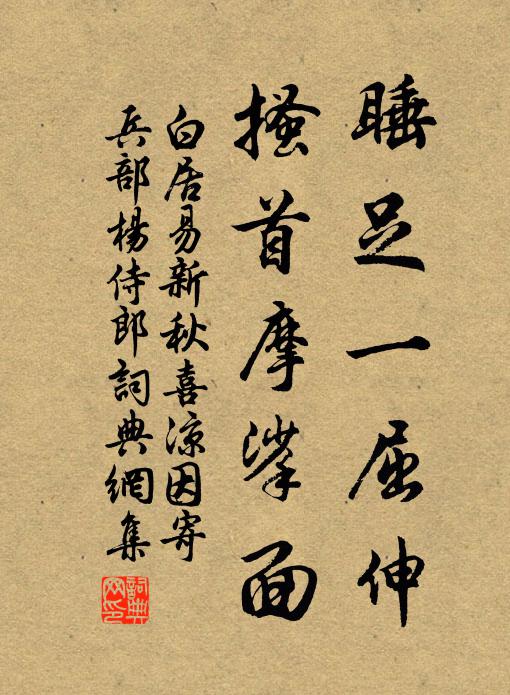 睡足一屈伸
搔首摩挲面
白居易新秋喜涼因寄
兵部楊侍郎詞典網集
詞典
网印